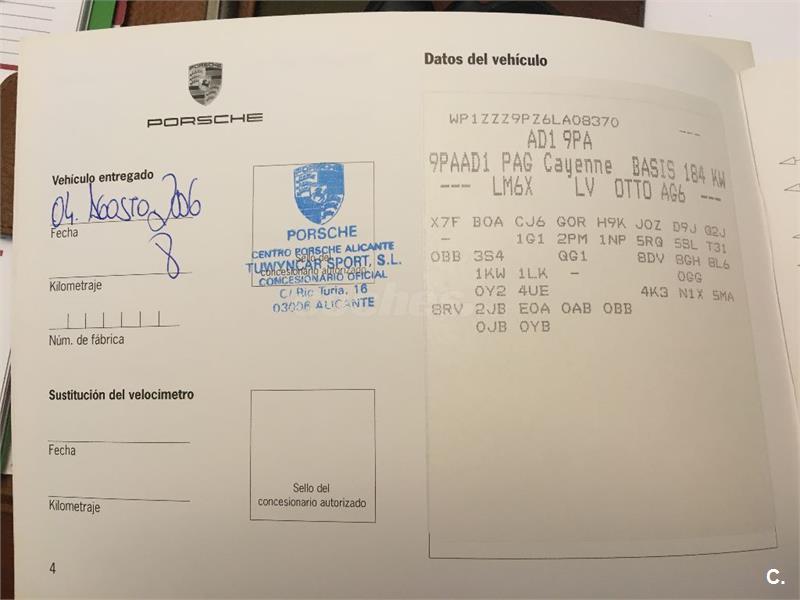 PORSCHE
PORSCHE
Vehículo entregado
04. AGOSTO 2006
Fecha
8
Kilometraje
Núm. de fábrica
PORSCHE
CENTRO PORSCHE ALICANTE
TUWYNCAR SPORT, S.L.
Sello del
concesionario autorizado
CONCESIONARIO OFICIAL
C/ Río Turia, 16
03006 ALICANTE
Sustitución del velocímetro
Fecha
Kilometraje
Sello del
concesionario autorizado
4
Datos del vehículo
WP1ZZZ9PZ6LA08370
---
AD1 9PA
9PAAD1 PAG Cayenne BASIS 184 KW
--- LM6X LV OTTO AG6 ---
X7F B0A CJ6 G0R H9K J0Z D9J Q2J
- 1G1 2PM 1NP 5RQ 5SL T31
0BB 3S4 QG1 8DV 8GH 8L6
1KW 1LK - 0GG
0Y2 4UE 4K3 N1X 5MA
8RV 2JB E0A 0AB 0BB
0JB 0YB
C.